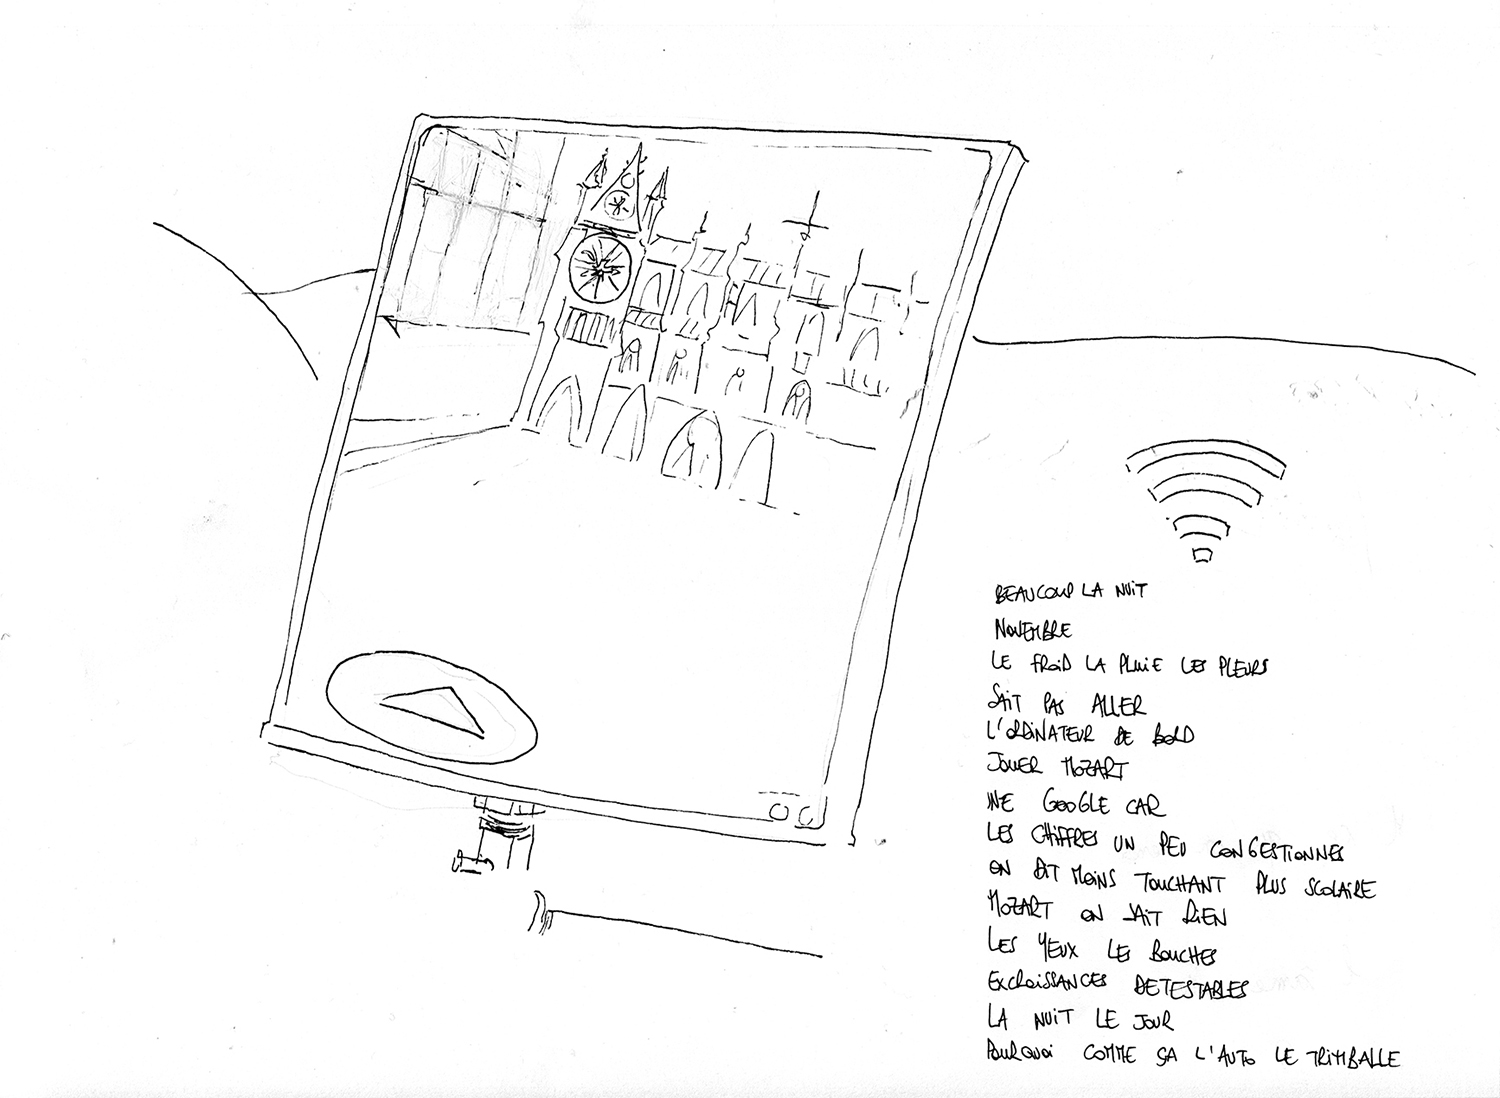 BEAUCOUP LA NUIT
NOVEMBRE
LE FROID LA PLUIE LES PLEURS
SAIT PAS ALLER
L'ORDINATEUR DE BORD
JOUER MOZART
UNE GOOGLE CAR
LES CHIFFRES UN PEU CONGESTIONNES
ON DIT MOINS TOUCHANT PLUS SCOLAIRE
MOZART ON SAIT RIEN
LES YEUX LES BOUCHES
EXCROISSANCES DETESTABLES
LA NUIT LE JOUR
POURQUOI COMME ÇA L'AUTO LE TRIMBALLE